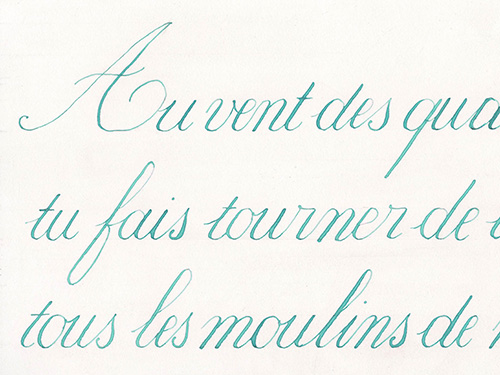 Au vent des qua
tu fais tourner de
tous les moulins de